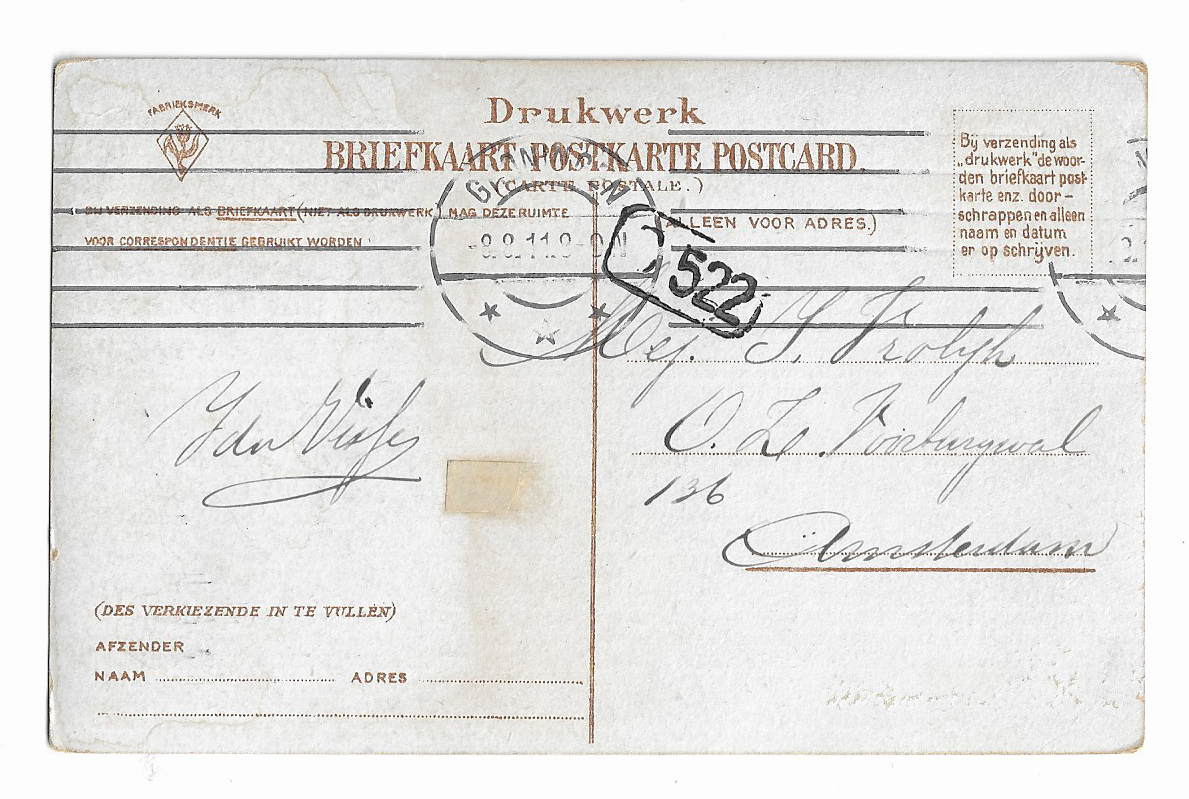 FABRIEKSMERK
Drukwerk
BRIEFKAART POSTKARTE POSTCARD.
(CARTE POSTALE.)
BIJ VERZENDING ALS BRIEFKAART (NIET ALS DRUKWERK) MAG DEZE RUIMTE
VOOR CORRESPONDENTIE GEBRUIKT WORDEN
(ALLEEN VOOR ADRES.)
By verzending als
„drukwerk" de woor-
den briefkaart post-
karte enz. door-
schrappen en alleen
naam en datum
er op schrijven.
522
Mej. S. Vrolijk
O. Z. Voorburgwal
136
Amsterdam
(DES VERKIEZENDE IN TE VULLEN)
AFZENDER
NAAM ADRES